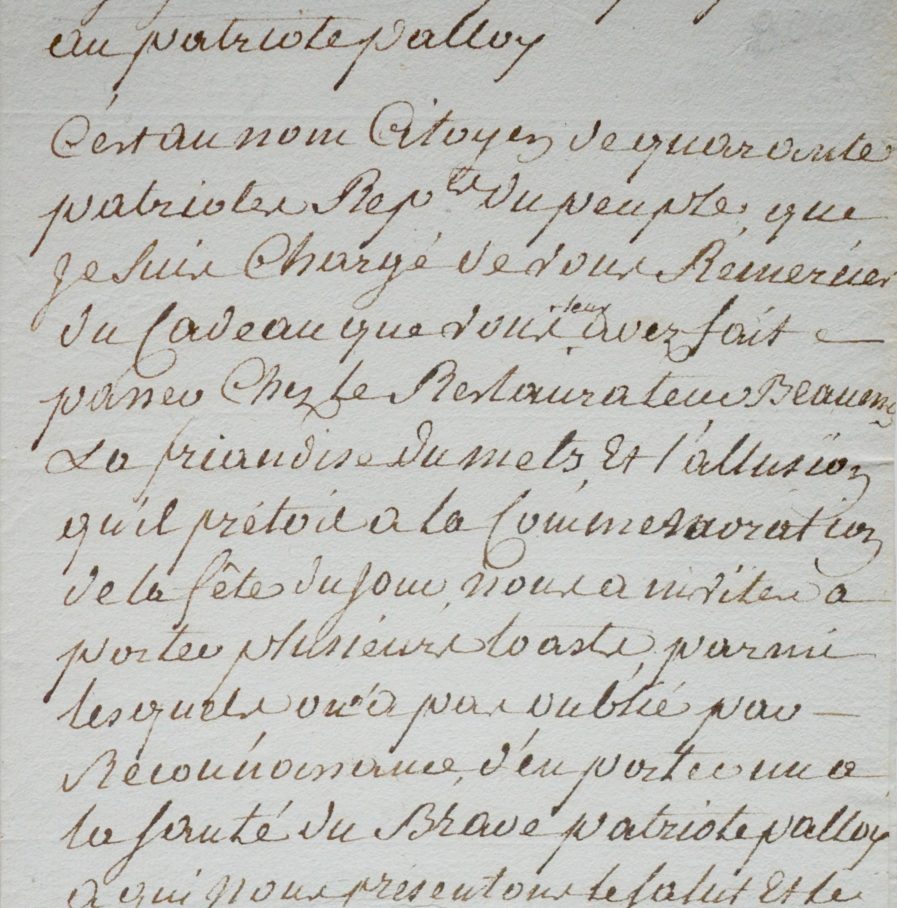 au patriote palloy
C'est au nom Citoyen de quarante
patriotes Rep.ts du peuple, que
je suis Chargé de vous Rémercier
du Cadeau que vous leur avez fait
passer Chez le Restaurateur Beau
La friandise du mets, Et l'allusïon
qu'il prétoit a la Commemoration
de la fête du jour, nous a invités a
porter plusieurs toasts, parmi
lesquels on n'a pas oublié par
Réconnoissance, d'en porter un a
la santé du Brave patriote palloy
a qui nous présentons le salut Et le